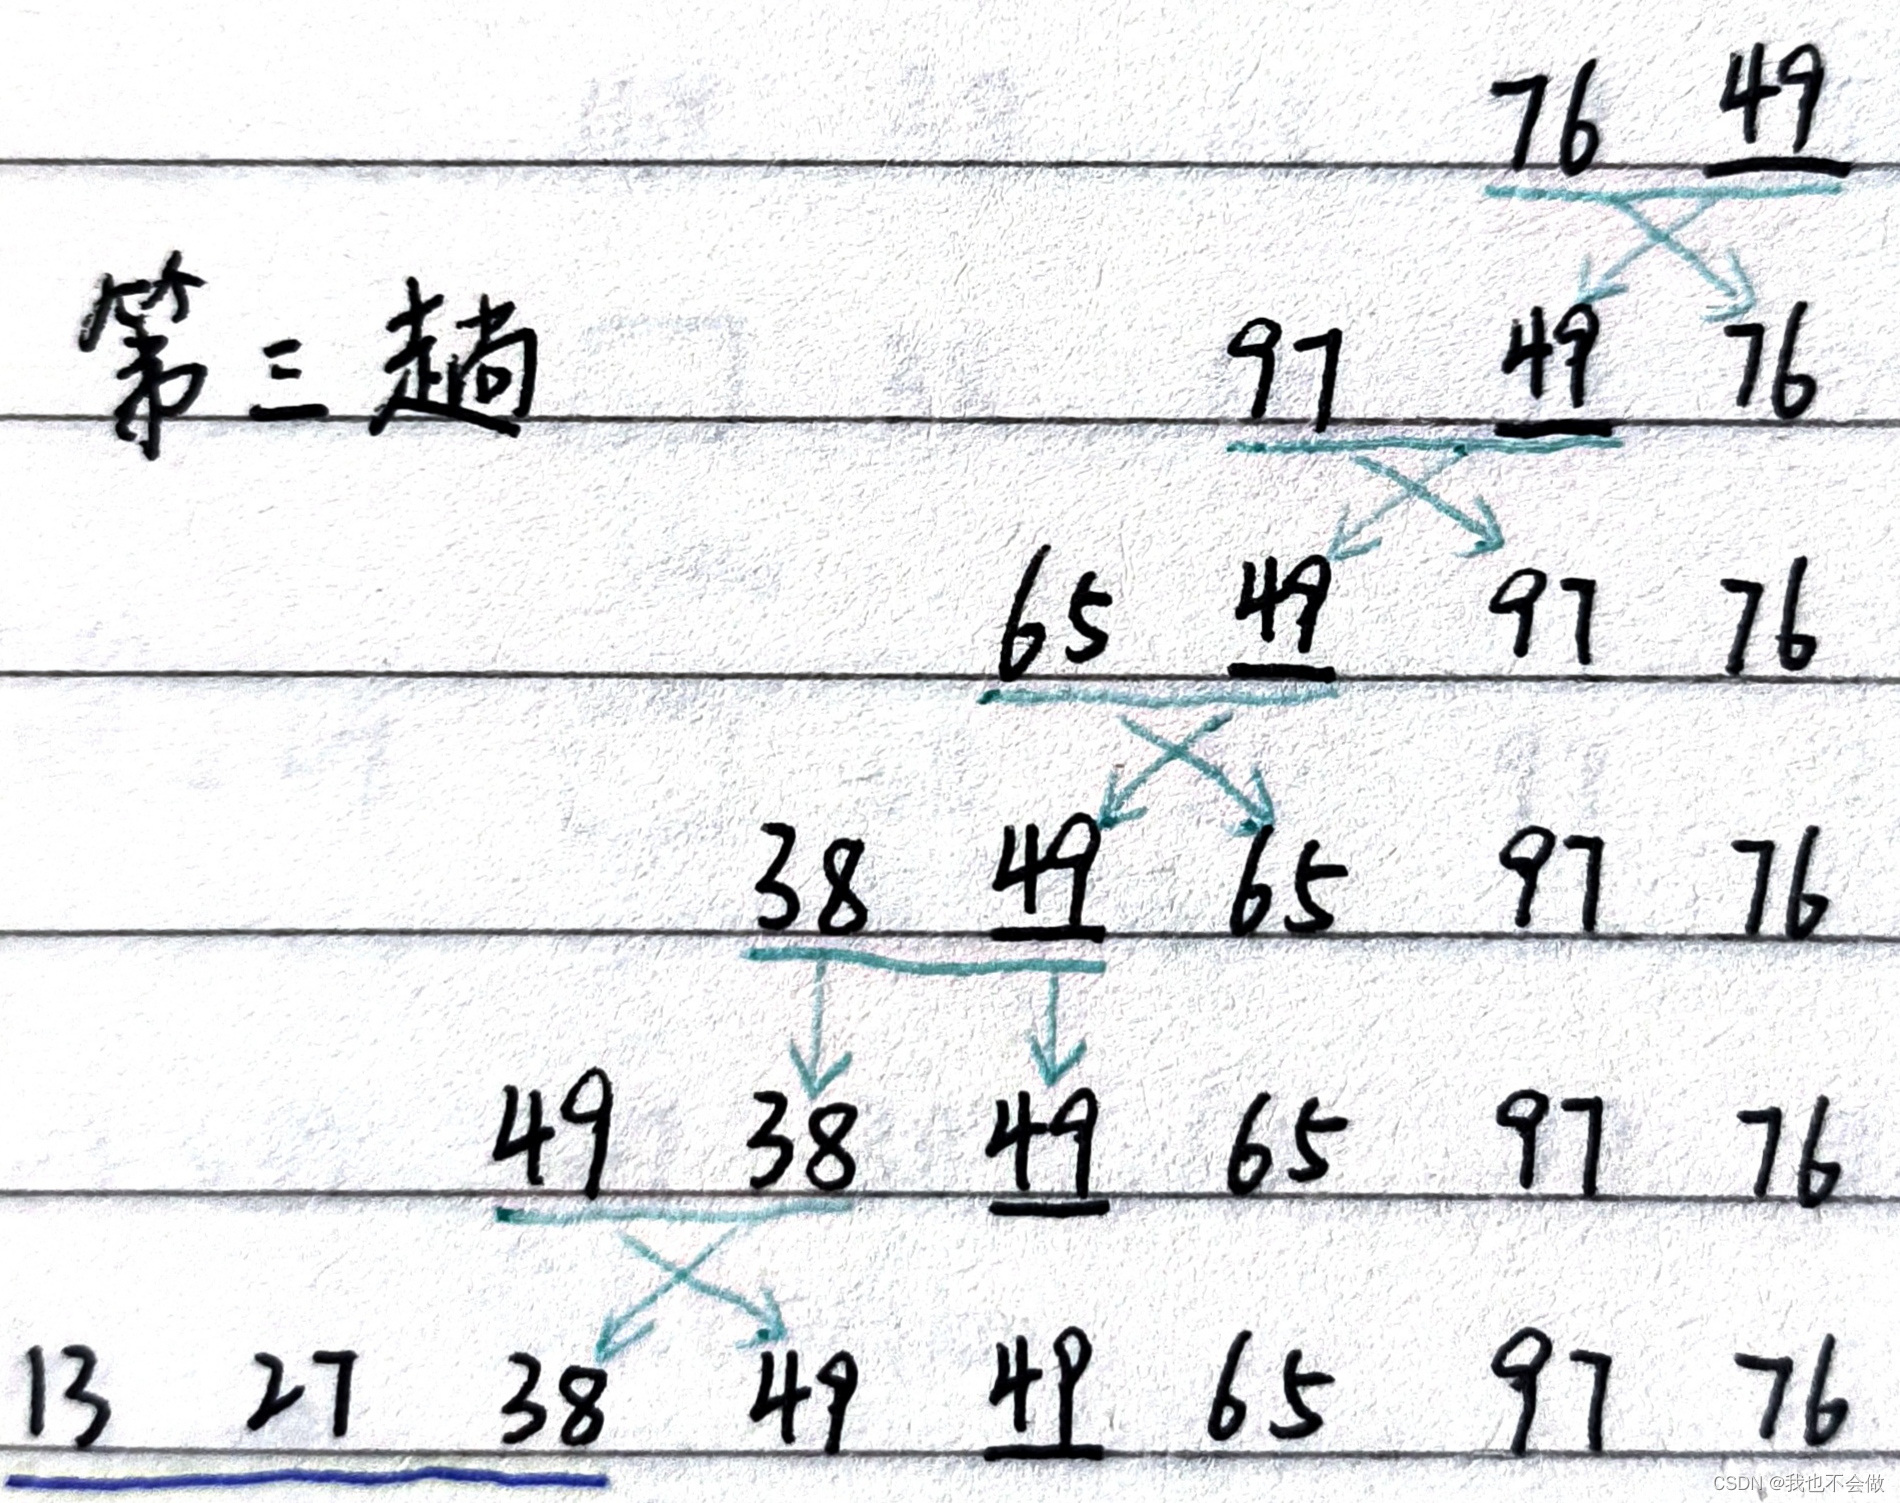 76 49
第三趟 97 49 76
65 49 97 76
38 49 65 97 76
49 38 49 65 97 76
13 27 38 49 49 65 97 76
CSDN @我也不会做